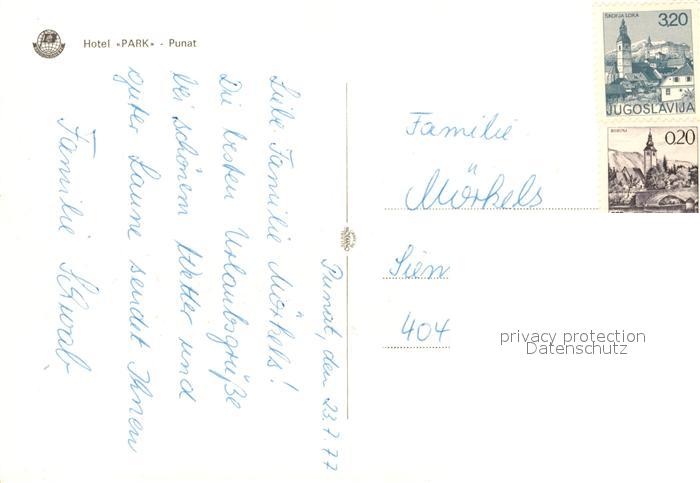 Hotel «PARK» - Punat
Punat, den 23.7.77
Liebe Familie Mörkels!
Die besten Urlaubsgrüße
bei schönem Wetter und
guter Laune sendet Ihnen
Familie Schwab
ŠKOFJA LOKA
3,20
JUGOSLAVIJA
BOHINJ
0,20
Familie
Mörkels
Sien
404
privacy protection
Datenschutz